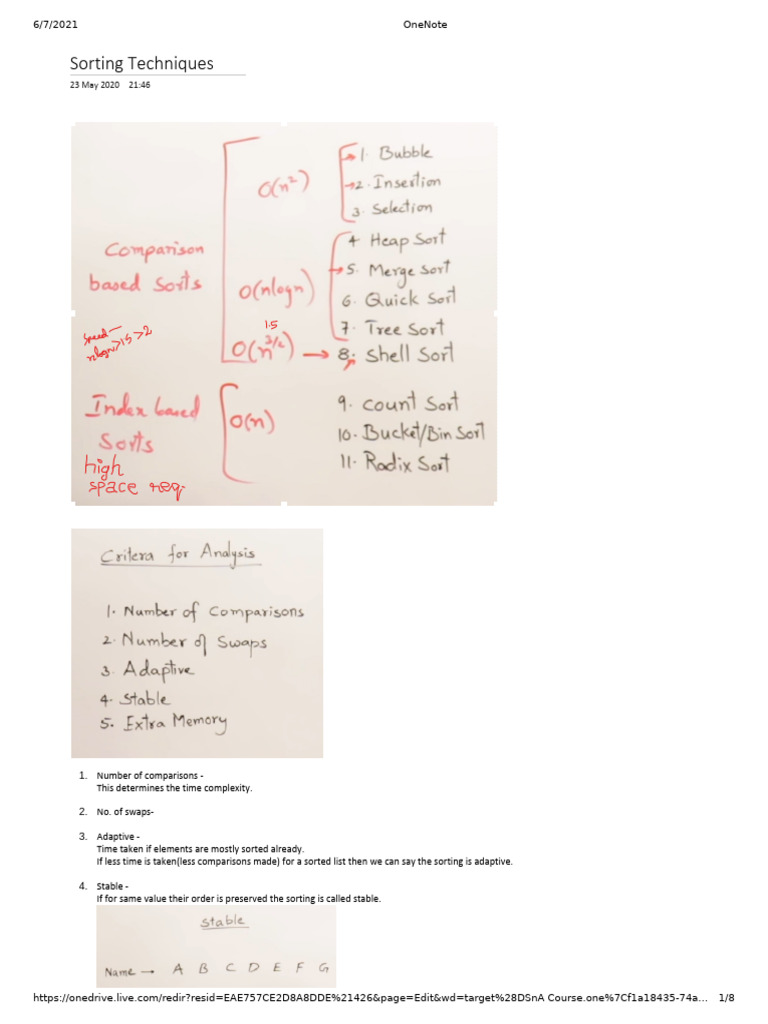 6/7/2021 OneNote
Sorting Techniques
23 May 2020 21:46
Comparison
based Sorts
O(n²)
1. Bubble
2. Insertion
3. Selection
O(nlogn)
4 Heap Sort
5. Merge Sort
6. Quick Sort
7. Tree Sort
1.5
O(n^3/2)
8. Shell Sort
Speed—
nlogn>1.5>2
Index based
Sorts
O(n)
9. Count Sort
10. Bucket/Bin Sort
11. Radix Sort
high
space req.
Critera for Analysis
1. Number of Comparisons
2. Number of Swaps
3. Adaptive
4. Stable
5. Extra Memory
1. Number of comparisons -
This determines the time complexity.
2. No. of swaps-
3. Adaptive -
Time taken if elements are mostly sorted already.
If less time is taken(less comparisons made) for a sorted list then we can say the sorting is adaptive.
4. Stable -
If for same value their order is preserved the sorting is called stable.
Stable
Name → A B C D E F G
https://onedrive.live.com/redir?resid=EAE757CE2D8A8DDE%21426&page=Edit&wd=target%28DSnA Course.one%7Cf1a18435-74a… 1/8